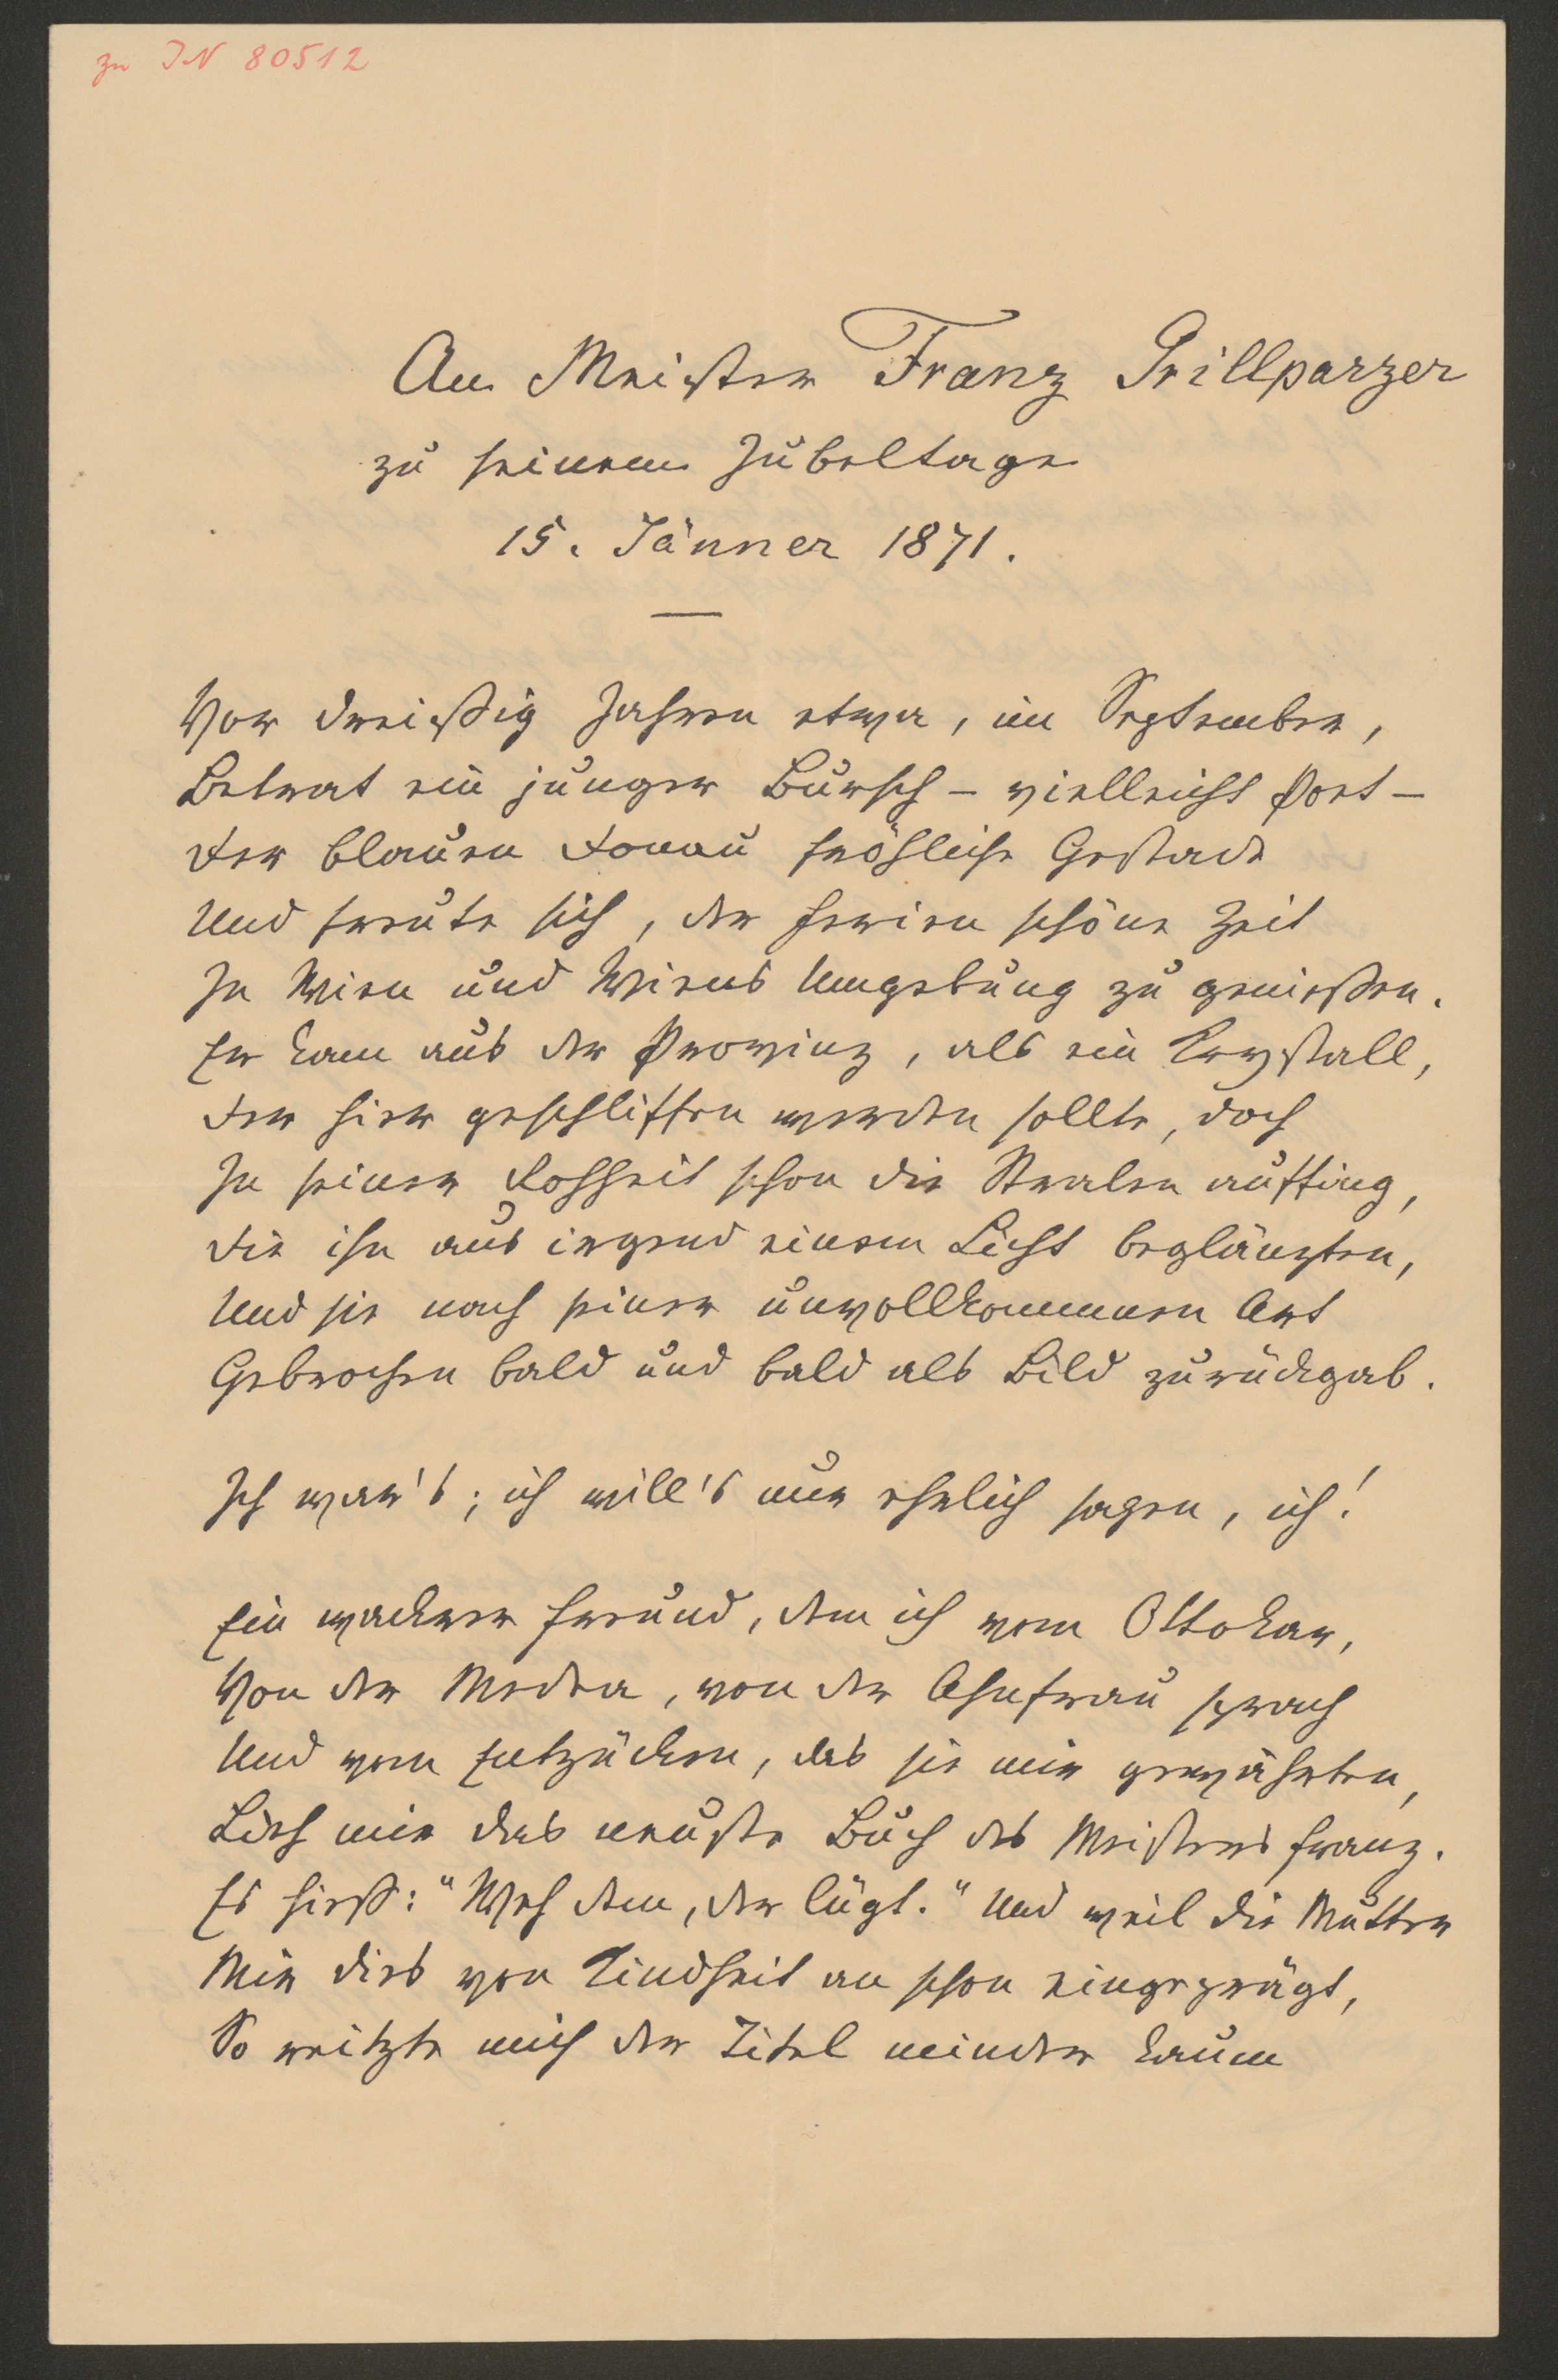 zu IN 80512
An Meister Franz Grillparzer
zu seinem Jubeltage
15. Jänner 1871.
Vor dreißig Jahren etwa, im September,
Betrat ein junger Bursch – vielleicht Poet –
Der blauen Donau fröhliche Gestade
Und freute sich, der Ferien schöne Zeit
In Wien und Wiens Umgebung zu genießen.
Er kam aus der Provinz, als ein Krystall,
Der hier geschliffen werden sollte, doch
In seiner Rohheit schon die Stralen auffing,
Die ihn aus irgend einem Licht beglänzten,
Und sie nach seiner unvollkommnen Art
Gebrochen bald und bald als Bild zurückgab.
Ich war's; ich will's nur ehrlich sagen, ich!
Ein wackrer Freund, dem ich vom Ottokar,
Von der Medea, von der Ahnfrau sprach
Und vom Entzücken, das sie mir gewährten,
Lieh mir das neuste Buch des Meisters Franz.
Es hieß: "Weh dem, der lügt." Und weil die Mutter
Mir dies von Kindheit an schon eingeprägt,
So reitzte mich der Titel minder kaum